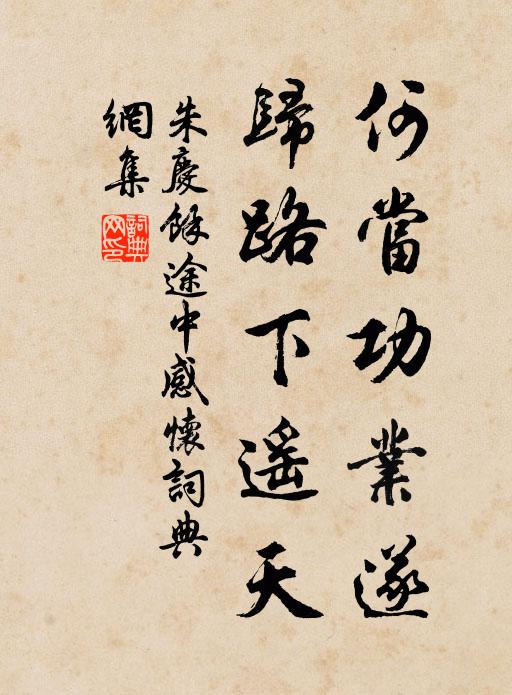 何當功業遂
歸路下遥天
朱慶餘途中感懷詞典
網集
詞典
网印